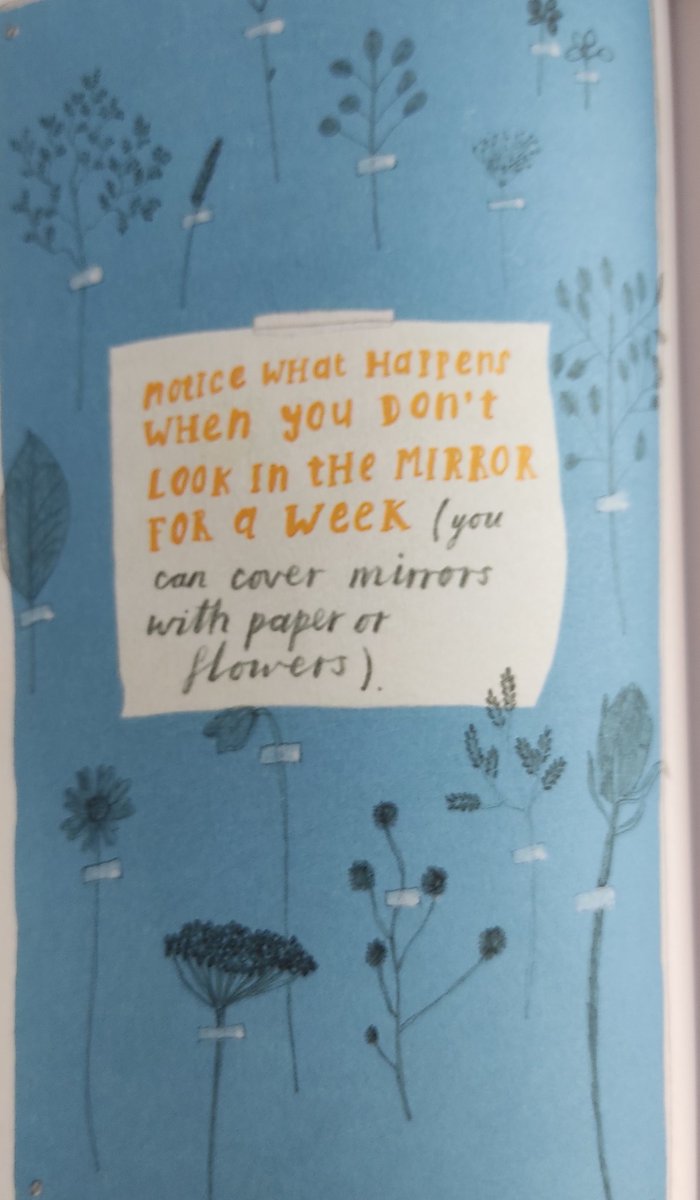 notice what happens
when you don't
look in the mirror
for a week (you
can cover mirrors
with paper or
flowers).